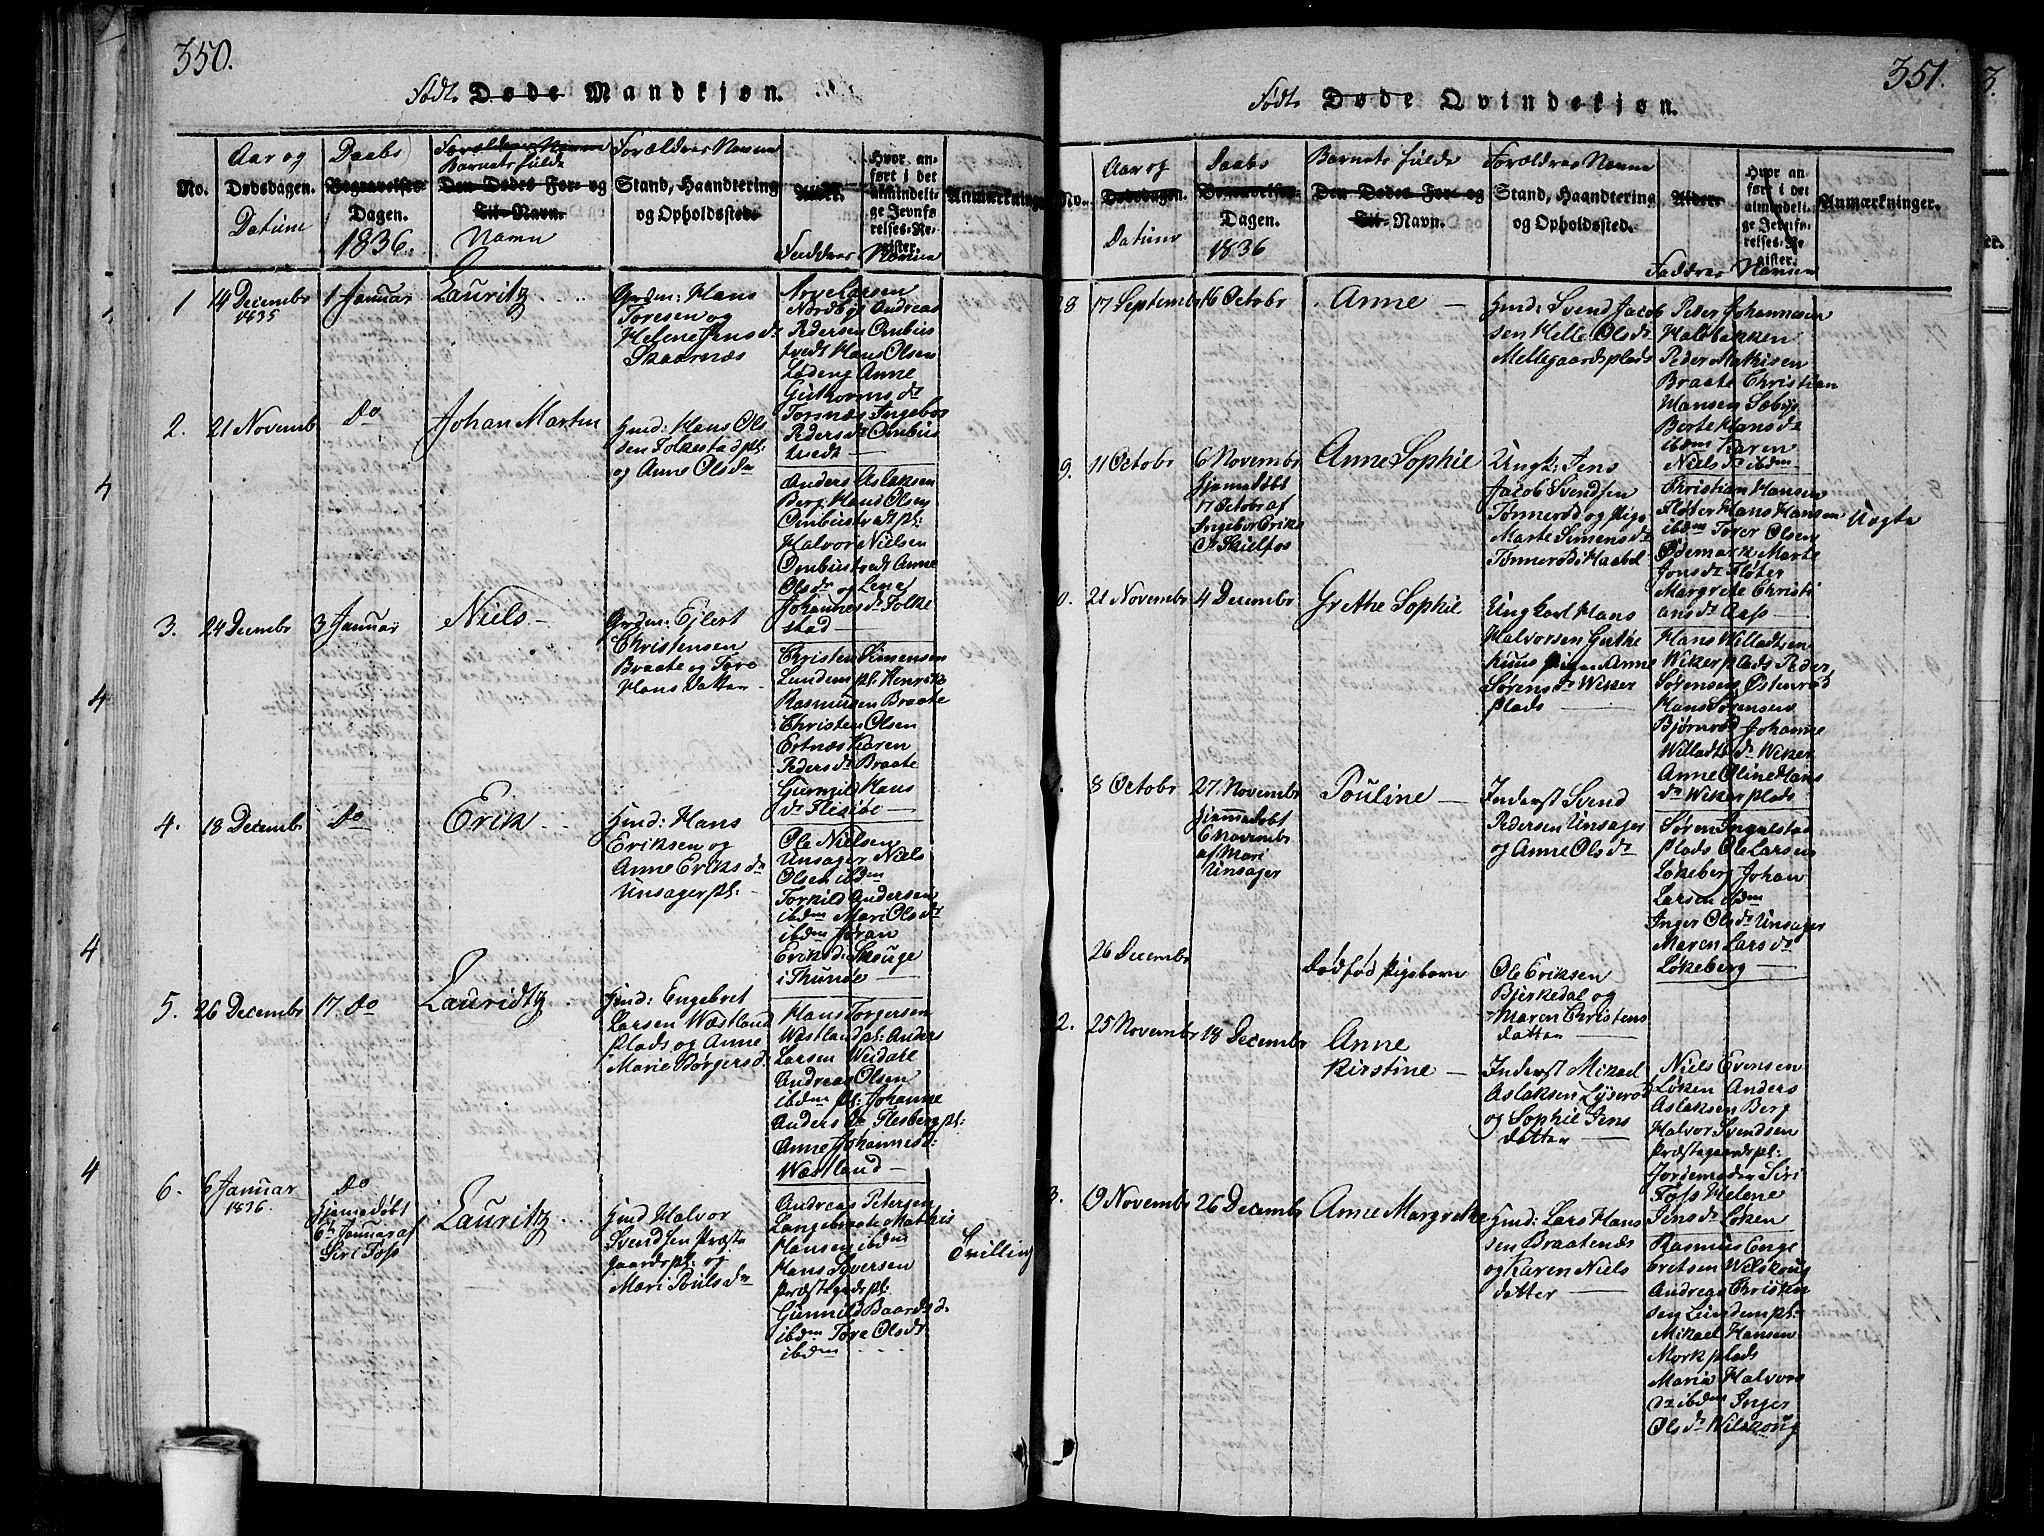 350.
Født Døde Mandkjøn.
No.
Aar og
Dødsdagen.
Datum
Daabs
Begravelses-
Dagen.
1836.
Forældres Navne
Barnets fulde
Den Dødes For- og
Til-Navn.
Navn
Forældres Navne
Stand, Haandtering
og Opholdssted
Alder.
Faddres Navne
Hvor an-
ført i det
almindeli-
ge Jevnfø-
relses-Re-
gister.
Anmærkninger
1
14 Decembr
1835
1 Januar
Lauritz
Grdm: Hans
Toresen og
Helene Jens dr
Skaarnæs
Nordbye Andreas
Pedersen Ombus
tvedt Hans Olsen
Lødeng Anne
Guthorms dr
Torsnæs Ingebor
Peders dr Ombus
tvedt
2.
21 Novemb
do
Johan Martin
Hmd: Hans Ol
sen Folkestad pl:
og Anne Ols dr
Anders Aslaksen
Berg Hans Olsen
Ombustvedt pl:
Halvor Nielsen
Ombustvedt Anne
Ols dr og Lene
Johannes dr Folke
stad
3.
24 Decembr
3 Januar
Niels
Grdm: Ejlert
Christensen
Braate og Tore
Hans datter
Christen Simensen
Lundem pl: Henrik
Rasmusen Braate
Christen Olsen
Ertnæs Karen
Peders dr Braate
Gunnild Hans
dr Flisibe
4.
18 Decembr
do
Erik
Hmd: Hans
Eriksen og
Anne Eriks dr
Unsager pl:
Ole Nielsen
Unsager Niels
Olsen ibdm
Torkild Andersen
ibdm Mari Ols dr
ibdm Jøran
Eriks d: Skouge
i Thune
5.
26 Decembr
17. do
Lauridtz
Hmd: Engebret
Larsen Wæstland
plads og Anne
Marie Børgers d.
Hans Torgersen
Wastland pl: Anders
Larsen Weidale
Andreas Olsen
ibdm pl: Johanne
Anders dr Flesberg pl:
Anne Johannis d:
Wæstland
6.
6 Januar
1836.
do
hjemmedøbt
6te Januar af
Siri Foss
Lauritz
Hmd Halvor
Svendsen Præste
gaards pl: og
Mari Pouls dr
Andreas Petersen
Langebraate Mathis
Hansen ibdm
Hans Syversen
Præstegrds pl:
Gunnild Baards d.
ibdm Tore Ols dr
ibdm
Tvilling
4
4
4
4
351.
Født Døde Qvindekjøn.
No.
Aar og
Dødsdagen.
Datum
Daabs
Begravelses-
Dagen.
1836
Barnets fulde
Den Dødes For- og
Til-Navn.
Forældres Navne
Stand, Haandtering
og Opholdssted.
Alder.
Faddres Navne
Hvor an-
ført i det
almindeli-
ge Jevnfø-
relses-Re-
gister.
Anmærkninger.
28
17 Septembr
16 Octobr
Anne
Hmd: Svend Jacob
sen Helle Ols dr
Mellegaards plads
Peter Johannesen
Holtbakken
Peder Mathisen
Braate Christian
Hansen Sæbye
Berte Hans dr
ibdm Karen
Niels dr ibdm
9.
11 Octobr
6 Novembr
hjemmedøbt
17 Octobr af
Ingebor Eriks
dr Skielfos
Anne Sophie
Ungk: Jens
Jacob Svendsen
Tønnerød og Pige
Marte Simens dr
Tønnerød i Haabøl
Christian Hansen
Fløter Hans Hansen
ibdm Torer Olsen
Ødemark Marte
Jons dr Fløter
Margrete Christi
ans dr Aass
Uægte
0.
21 Novembr
4 Decembr
Grethe Sophie
Ungkarl Hans
Halvorsen Guthe
huus pigen Anne
Sørens dr Wiker
plads
Hans Willadsen
Wiker plads Peder
Sørensen Østenrød
Hans Sørensen
Bjørnrød Johanne
Willads dr Wiker
Anne Oline Hans
dr Wiker plads
8 Octobr
27. Novembr
hjemmedøbt
6 Novembr
af Mari
Unsager
Pouline
Inderst Svend
Pedersen Unsager
og Anne Ols dr
Søren Ingulstad
plads Ole Larsen
Løkeberg Johan
Larsen ibdm
Inger Ols dr Unsager
Maren Lars dr
Løkeberg
26 Decembr
Dødfød Pigebarn
Ole Eriksen
Bjerkedal og
Maren Christens
datter
2.
25 Novembr
18 Decembr
Anne
Kirstine
Inderst Mikael
Aslaksen Lyserød
og Sophie Jens
datter
Niels Evensen
Løken Anders
Aslaksen Berg
Halvor Svendsen
Præstegaards pl:
Jordemoder Siri
Foss Helene
Jens dr Løken
3.
19 Novembr
26 Decembr
Anne Margrete
Hmd: Lars Hans
sen Braatenæs
og Karen Niels
datter
Rasmus Enge
bretsen Wilskoug
Andreas Christen
sen Lundem pl:
Mikael Hansen
Mork plads
Maria Halvors
dr ibdm Inger
Ols dr Wilskoug